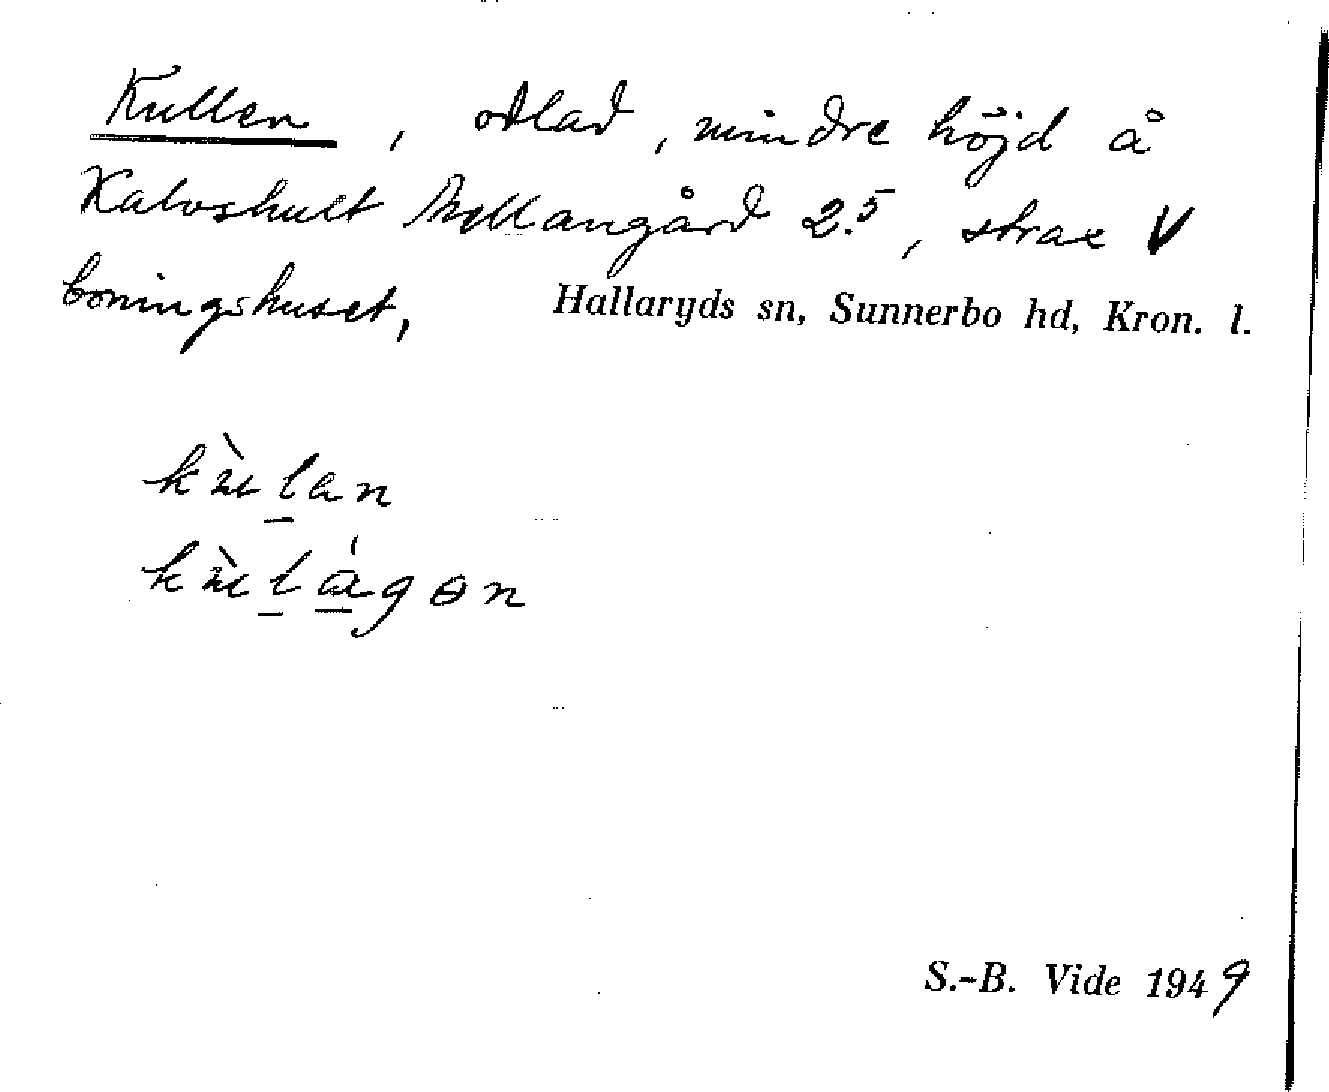 Kullen, odlad, mindre höjd å
Kalvshult Mellangård 2.5, strax V
boningshuset,
Hallaryds sn, Sunnerbo hd, Kron. l.
S.-B. Vide 1949